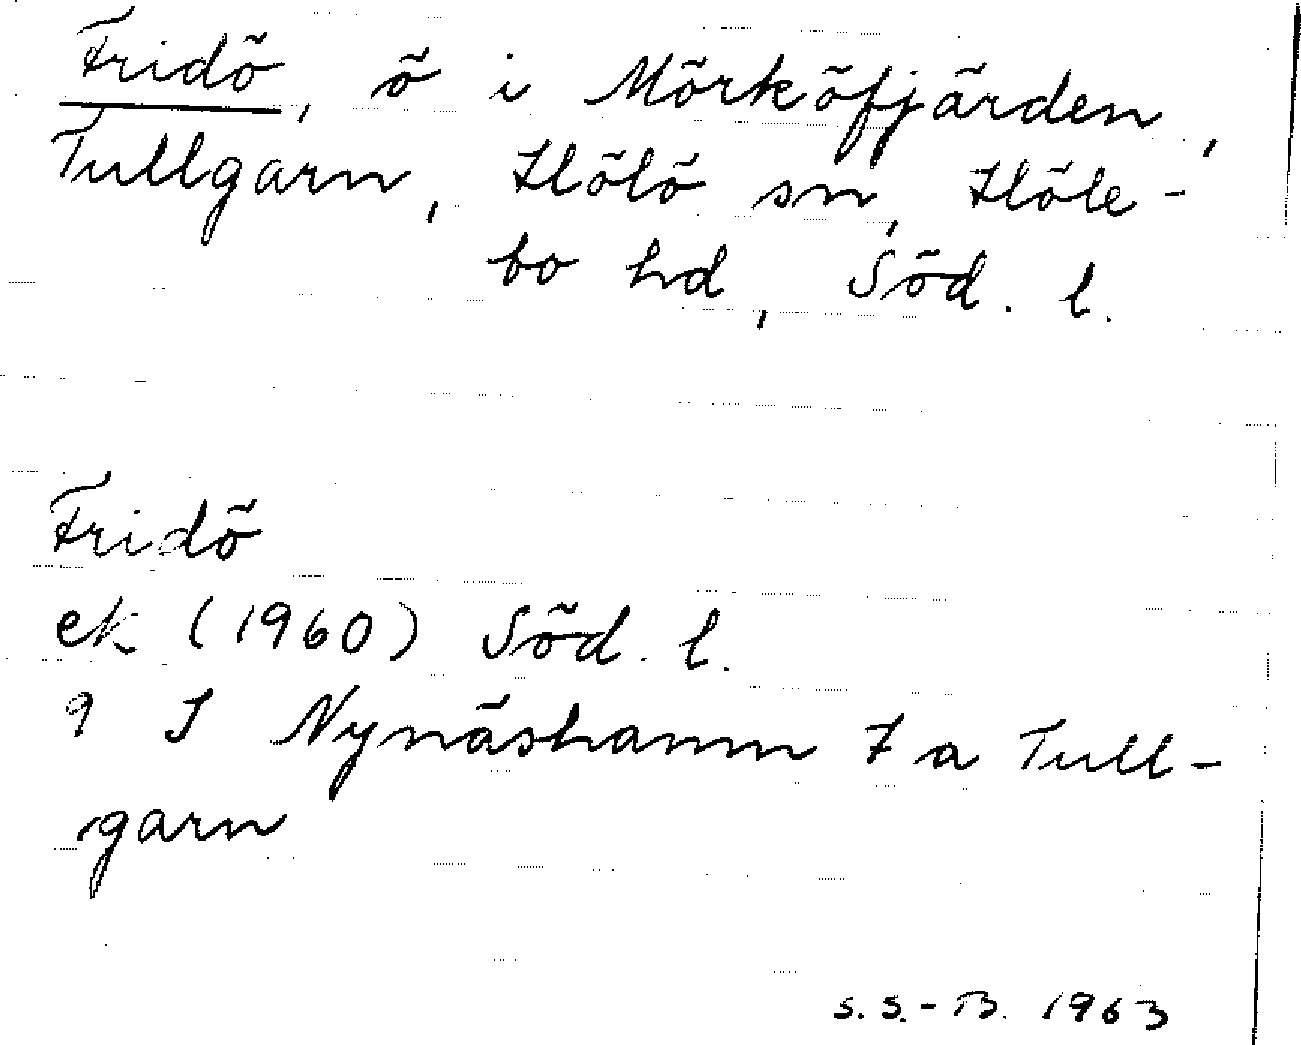 Fridö, ö i Mörköfjärden,
Tullgarn, Hölö sn, Höle-
bo hd, Söd. l.
Fridö
ek (1960) Söd. l.
9 I Nynäshamn 7 a Tull-
garn
S. S.-B. 1963